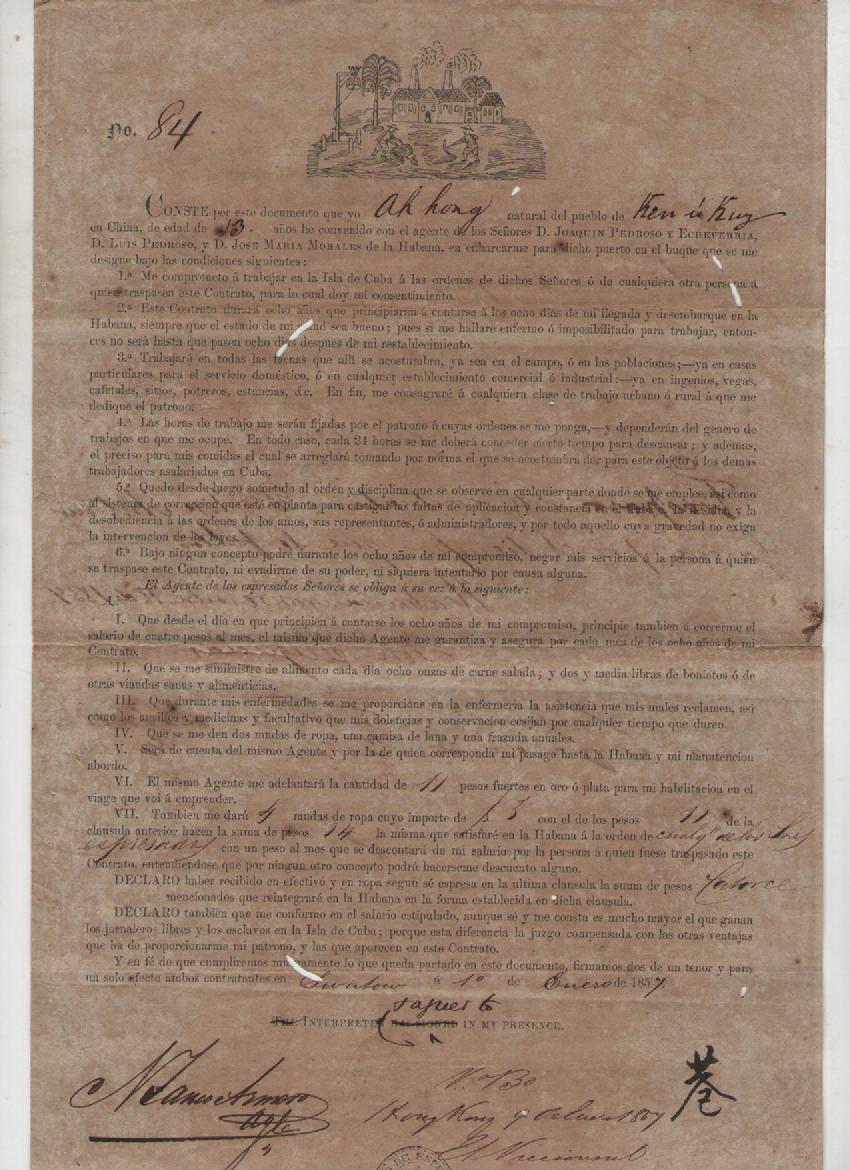 No. 84
CONSTE por este documento que yo Ah hong natural del pueblo de
en China, de edad de años he convenido con el agente de los Señores D. JOAQUIN PEDROSO Y ECHEVERRIA,
D. LUIS PEDROSO, Y D. JOSE MARIA MORALES de la Habana, en embarcarme para dicho puerto en el buque que se me
designe bajo las condiciones siguientes:
1.ª Me comprometo á trabajar en la Isla de Cuba á las ordenes de dichos Señores ó de cualquiera otra persona á
quien traspasen este Contrato, para lo cual doy mi consentimiento.
2.ª Este Contrato durará ocho años que principiarán á contarse á los ocho dias de mi llegada y desembarque en la
Habana, siempre que el estado de mi salud sea bueno; pues si me hallare enfermo ó imposibilitado para trabajar, enton-
ces no será hasta que pasen ocho dias despues de mi restablecimiento.
3.ª Trabajaré en todas las faenas que alli se acostumbra, ya sea en el campo, ó en las poblaciones;—ya en casas
particulares para el servicio doméstico, ó en cualquier establecimiento comercial ó industrial:—ya en ingenios, vegas,
cafetales, sitios, potreros, estancias, &c. En fin, me consagraré á cualquiera clase de trabajo urbano ó rural á que me
dedique el patrono.
4.ª Las horas de trabajo me serán fijadas por el patrono á cuyas ordenes se me ponga,—y dependerán del genero de
trabajos en que me ocupe. En todo caso, cada 24 horas se me deberá conceder cierto tiempo para descansar; y ademas,
el preciso para mis comidas el cual se arreglará tomando por norma el que se acostumbra dar para este objeto á los demas
trabajadores asalariados en Cuba.
5.ª Quedo desde luego sometido al orden y disciplina que se observe en cualquier parte donde se me emplee, asi como
al sistema de correccion que esté en planta para castigar las faltas de aplicacion y constancia en el trabajo, la desidia y la
desobediencia á las ordenes de los amos, sus representantes, ó administradores, y por todo aquello cuya gravedad no exiga
la intervencion de las leyes.
6.ª Bajo ningun concepto podré durante los ocho años de mi compromiso, negar mis servicios á la persona á quien
se traspase este Contrato, ni evadirme de su poder, ni siquiera intentarlo por causa alguna.
El Agente de los espresados Señores se obliga á su vez á la siguiente:
I. Que desde el dia en que principien á contarse los ocho años de mi compromiso, principie tambien á correrme el
salario de cuatro pesos al mes, el mismo que dicho Agente me garantiza y asegura por cada mes de los ocho años de mi
Contrato.
II. Que se me suministre de alimento cada dia ocho onzas de carne salada; y dos y media libras de boniatos ó de
otras viandas sanas y alimenticias.
III. Que durante mis enfermedades se me proporcione en la enfermeria la asistencia que mis males reclamen, asi
como los ausilios y medicinas y facultativo que mis dolencias y conservacion ecsijan por cualquier tiempo que duren.
IV. Que se me den dos mudas de ropa, una camisa de lana y una frazada anuales.
V. Será de cuenta del mismo Agente y por la de quien corresponda mi pasage hasta la Habana y mi manutencion
abordo.
VI. El mismo Agente me adelantará la cantidad de 11 pesos fuertes en oro ó plata para mi habilitacion en el
viage que voi á emprender.
VII. Tambien me dará 4 mudas de ropa cuyo importe de $3 con el de los pesos 11 de la
clausula anterior hacen la suma de pesos 14 la misma que satisfaré en la Habana á la orden de
espresados con un peso al mes que se descontará de mi salario por la persona á quien fuese traspasado este
Contrato, entendiéndose que por ningun otro concepto podrá hacerseme descuento alguno.
DECLARO haber recibido en efectivo y en ropa segun sé espresa en la ultima clausula la suma de pesos Catorce
mencionados que reintegraré en la Habana en la forma establecida en dicha clausula.
DECLARO tambien que me conformo en el salario estipulado, aunque sé y me consta es mucho mayor el que ganan
los jornaleros libres y los esclavos en la Isla de Cuba; porque esta diferencia la juzgo compensada con las otras ventajas
que ha de proporcionarme mi patrono, y las que aparecen en este Contrato.
Y en fé de que cumpliremos mutuamente lo que queda pactado en este documento, firmamos dos de un tenor y para
un solo efecto ambos contratantes en Swatow á 1º de Enero de 1857.
THE INTERPRETER HAS SIGNED IN MY PRESENCE.
Vº Bº
Hong Kong 9 de Enero 1857